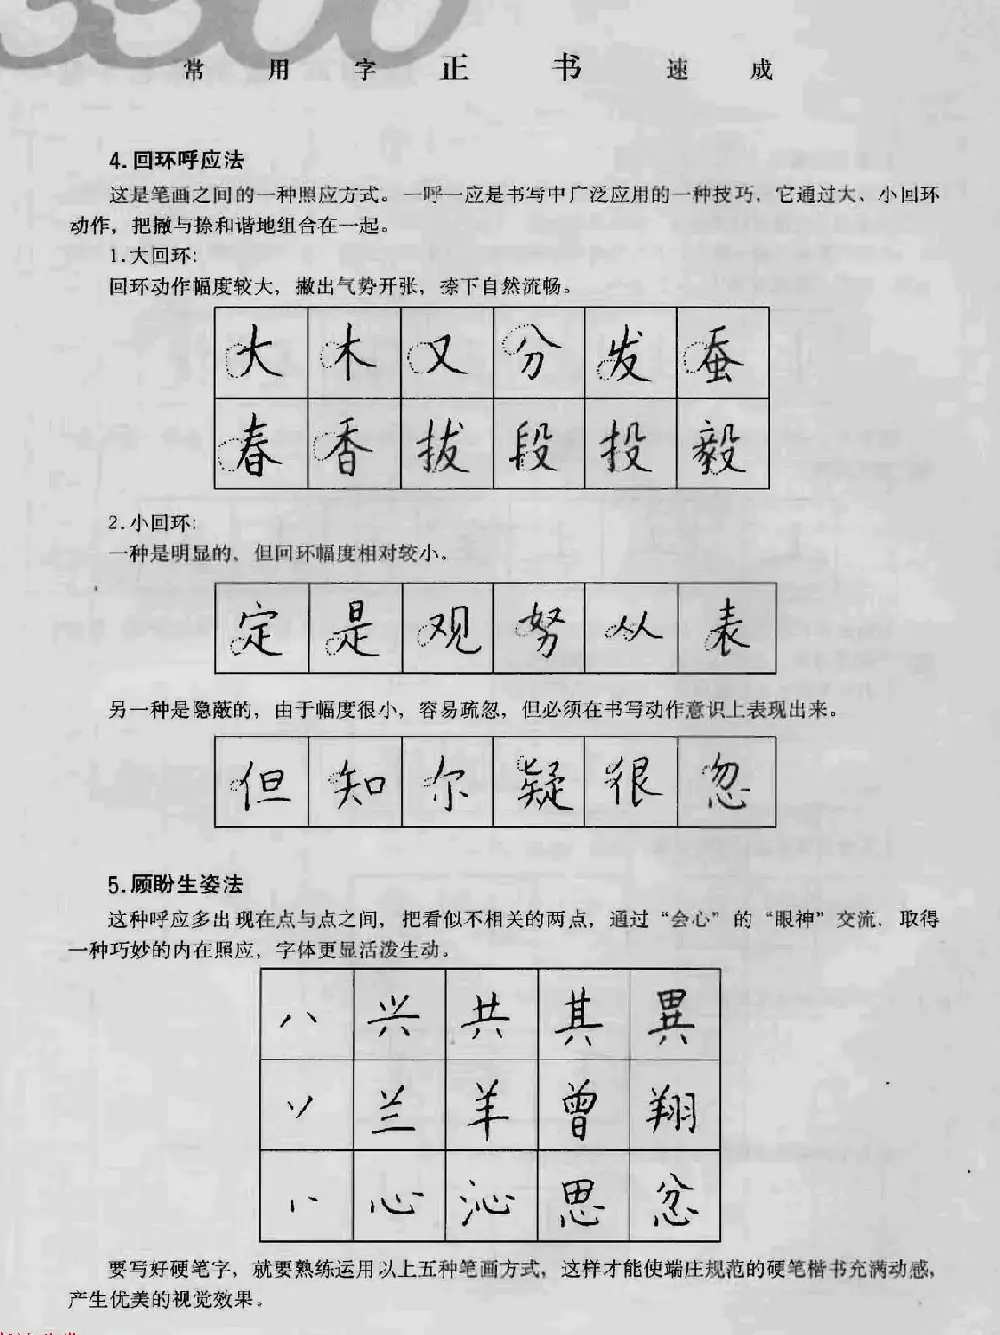 3500
常用字正书速成
4.回环呼应法
这是笔画之间的一种照应方式。一呼一应是书写中广泛应用的一种技巧,它通过大、小回环
动作,把撇与捺和谐地组合在一起。
1.大回环:
回环动作幅度较大,撇出气势开张,捺下自然流畅。
大木又分发蚕
春香拔段投毅
2.小回环:
一种是明显的,但回环幅度相对较小。
定是观努从表
另一种是隐蔽的,由于幅度很小,容易疏忽,但必须在书写动作意识上表现出来。
但知尔疑很忽
5.顾盼生姿法
这种呼应多出现在点与点之间,把看似不相关的两点,通过“会心”的“眼神”交流,取得
一种巧妙的内在照应,字体更显活泼生动。
八兴共其異
丷兰羊曾翔
心沁思忿
要写好硬笔字,就要熟练运用以上五种笔画方式,这样才能使端庄规范的硬笔楷书充满动感,
产生优美的视觉效果。